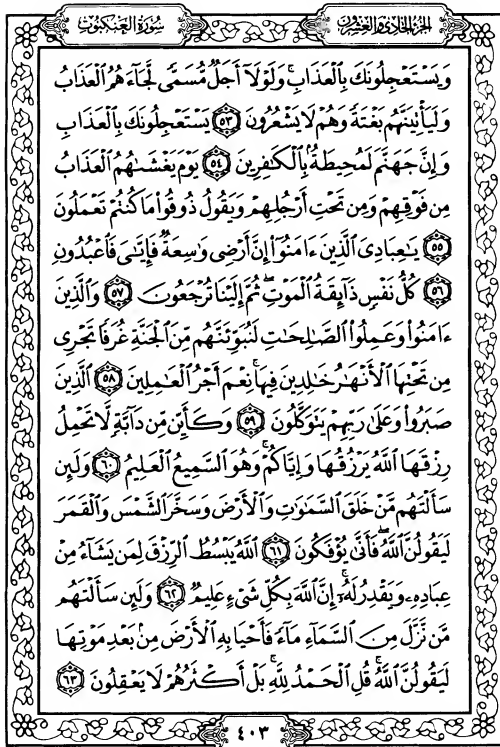 سُورَةُ العَنكَبُوتِ الجُزءُ الحَادِي وَالعِشرُون
وَيَسْتَعْجِلُونَكَ بِالْعَذَابِ ۚ وَلَوْلَآ أَجَلٌ مُّسَمًّى لَّجَآءَهُمُ الْعَذَابُ
وَلَيَأْتِيَنَّهُم بَغْتَةً وَهُمْ لَا يَشْعُرُونَ ٥٣ يَسْتَعْجِلُونَكَ بِالْعَذَابِ
وَإِنَّ جَهَنَّمَ لَمُحِيطَةٌۢ بِالْكَٰفِرِينَ ٥٤ يَوْمَ يَغْشَىٰهُمُ الْعَذَابُ
مِن فَوْقِهِمْ وَمِن تَحْتِ أَرْجُلِهِمْ وَيَقُولُ ذُوقُوا۟ مَا كُنتُمْ تَعْمَلُونَ
٥٥ يَٰعِبَادِىَ الَّذِينَ ءَامَنُوٓا۟ إِنَّ أَرْضِى وَٰسِعَةٌ فَإِيَّٰىَ فَاعْبُدُونِ
٥٦ كُلُّ نَفْسٍ ذَآئِقَةُ الْمَوْتِ ۖ ثُمَّ إِلَيْنَا تُرْجَعُونَ ٥٧ وَالَّذِينَ
ءَامَنُوا۟ وَعَمِلُوا۟ الصَّٰلِحَٰتِ لَنُبَوِّئَنَّهُم مِّنَ الْجَنَّةِ غُرَفًا تَجْرِى
مِن تَحْتِهَا الْأَنْهَٰرُ خَٰلِدِينَ فِيهَا ۚ نِعْمَ أَجْرُ الْعَٰمِلِينَ ٥٨ الَّذِينَ
صَبَرُوا۟ وَعَلَىٰ رَبِّهِمْ يَتَوَكَّلُونَ ٥٩ وَكَأَيِّن مِّن دَآبَّةٍ لَّا تَحْمِلُ
رِزْقَهَا اللَّهُ يَرْزُقُهَا وَإِيَّاكُمْ ۚ وَهُوَ السَّمِيعُ الْعَلِيمُ ٦٠ وَلَئِن
سَأَلْتَهُم مَّنْ خَلَقَ السَّمَٰوَٰتِ وَالْأَرْضَ وَسَخَّرَ الشَّمْسَ وَالْقَمَرَ
لَيَقُولُنَّ اللَّهُ ۖ فَأَنَّىٰ يُؤْفَكُونَ ٦١ اللَّهُ يَبْسُطُ الرِّزْقَ لِمَن يَشَآءُ مِنْ
عِبَادِهِۦ وَيَقْدِرُ لَهُۥٓ ۚ إِنَّ اللَّهَ بِكُلِّ شَىْءٍ عَلِيمٌ ٦٢ وَلَئِن سَأَلْتَهُم
مَّن نَّزَّلَ مِنَ السَّمَآءِ مَآءً فَأَحْيَا بِهِ الْأَرْضَ مِنۢ بَعْدِ مَوْتِهَا
لَيَقُولُنَّ اللَّهُ ۚ قُلِ الْحَمْدُ لِلَّهِ ۚ بَلْ أَكْثَرُهُمْ لَا يَعْقِلُونَ ٦٣
٤٠٣